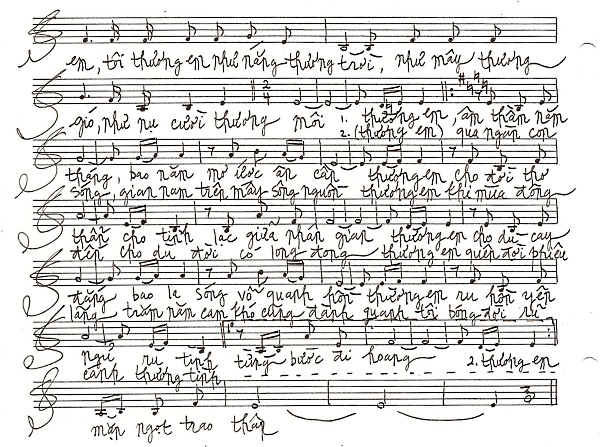 em, tôi thương em như nắng thương trời, như mây thương
2/4
gió, như nụ cười thương môi 1. thương em, âm thầm năm
2. (thương em) qua ngàn con
tháng, bao năm mơ ước ân cần thương em cho đời thơ
sông, gian nan trên mấy sông nguồn thương em khi mùa đông
thẩn cho tình lạc giữa nhân gian thương em cho dù cay
đến cho dù đời có long đong thương em quên đời phiêu
đắng bao la sóng vỗ quanh hồn thương em ru hồn yên
lãng trăm năm cam khổ cũng đành quanh tôi bóng đời vì
nghỉ ru tình từng bước đi hoang 2. thương em
cánh thương tình
mặn ngọt trao thân